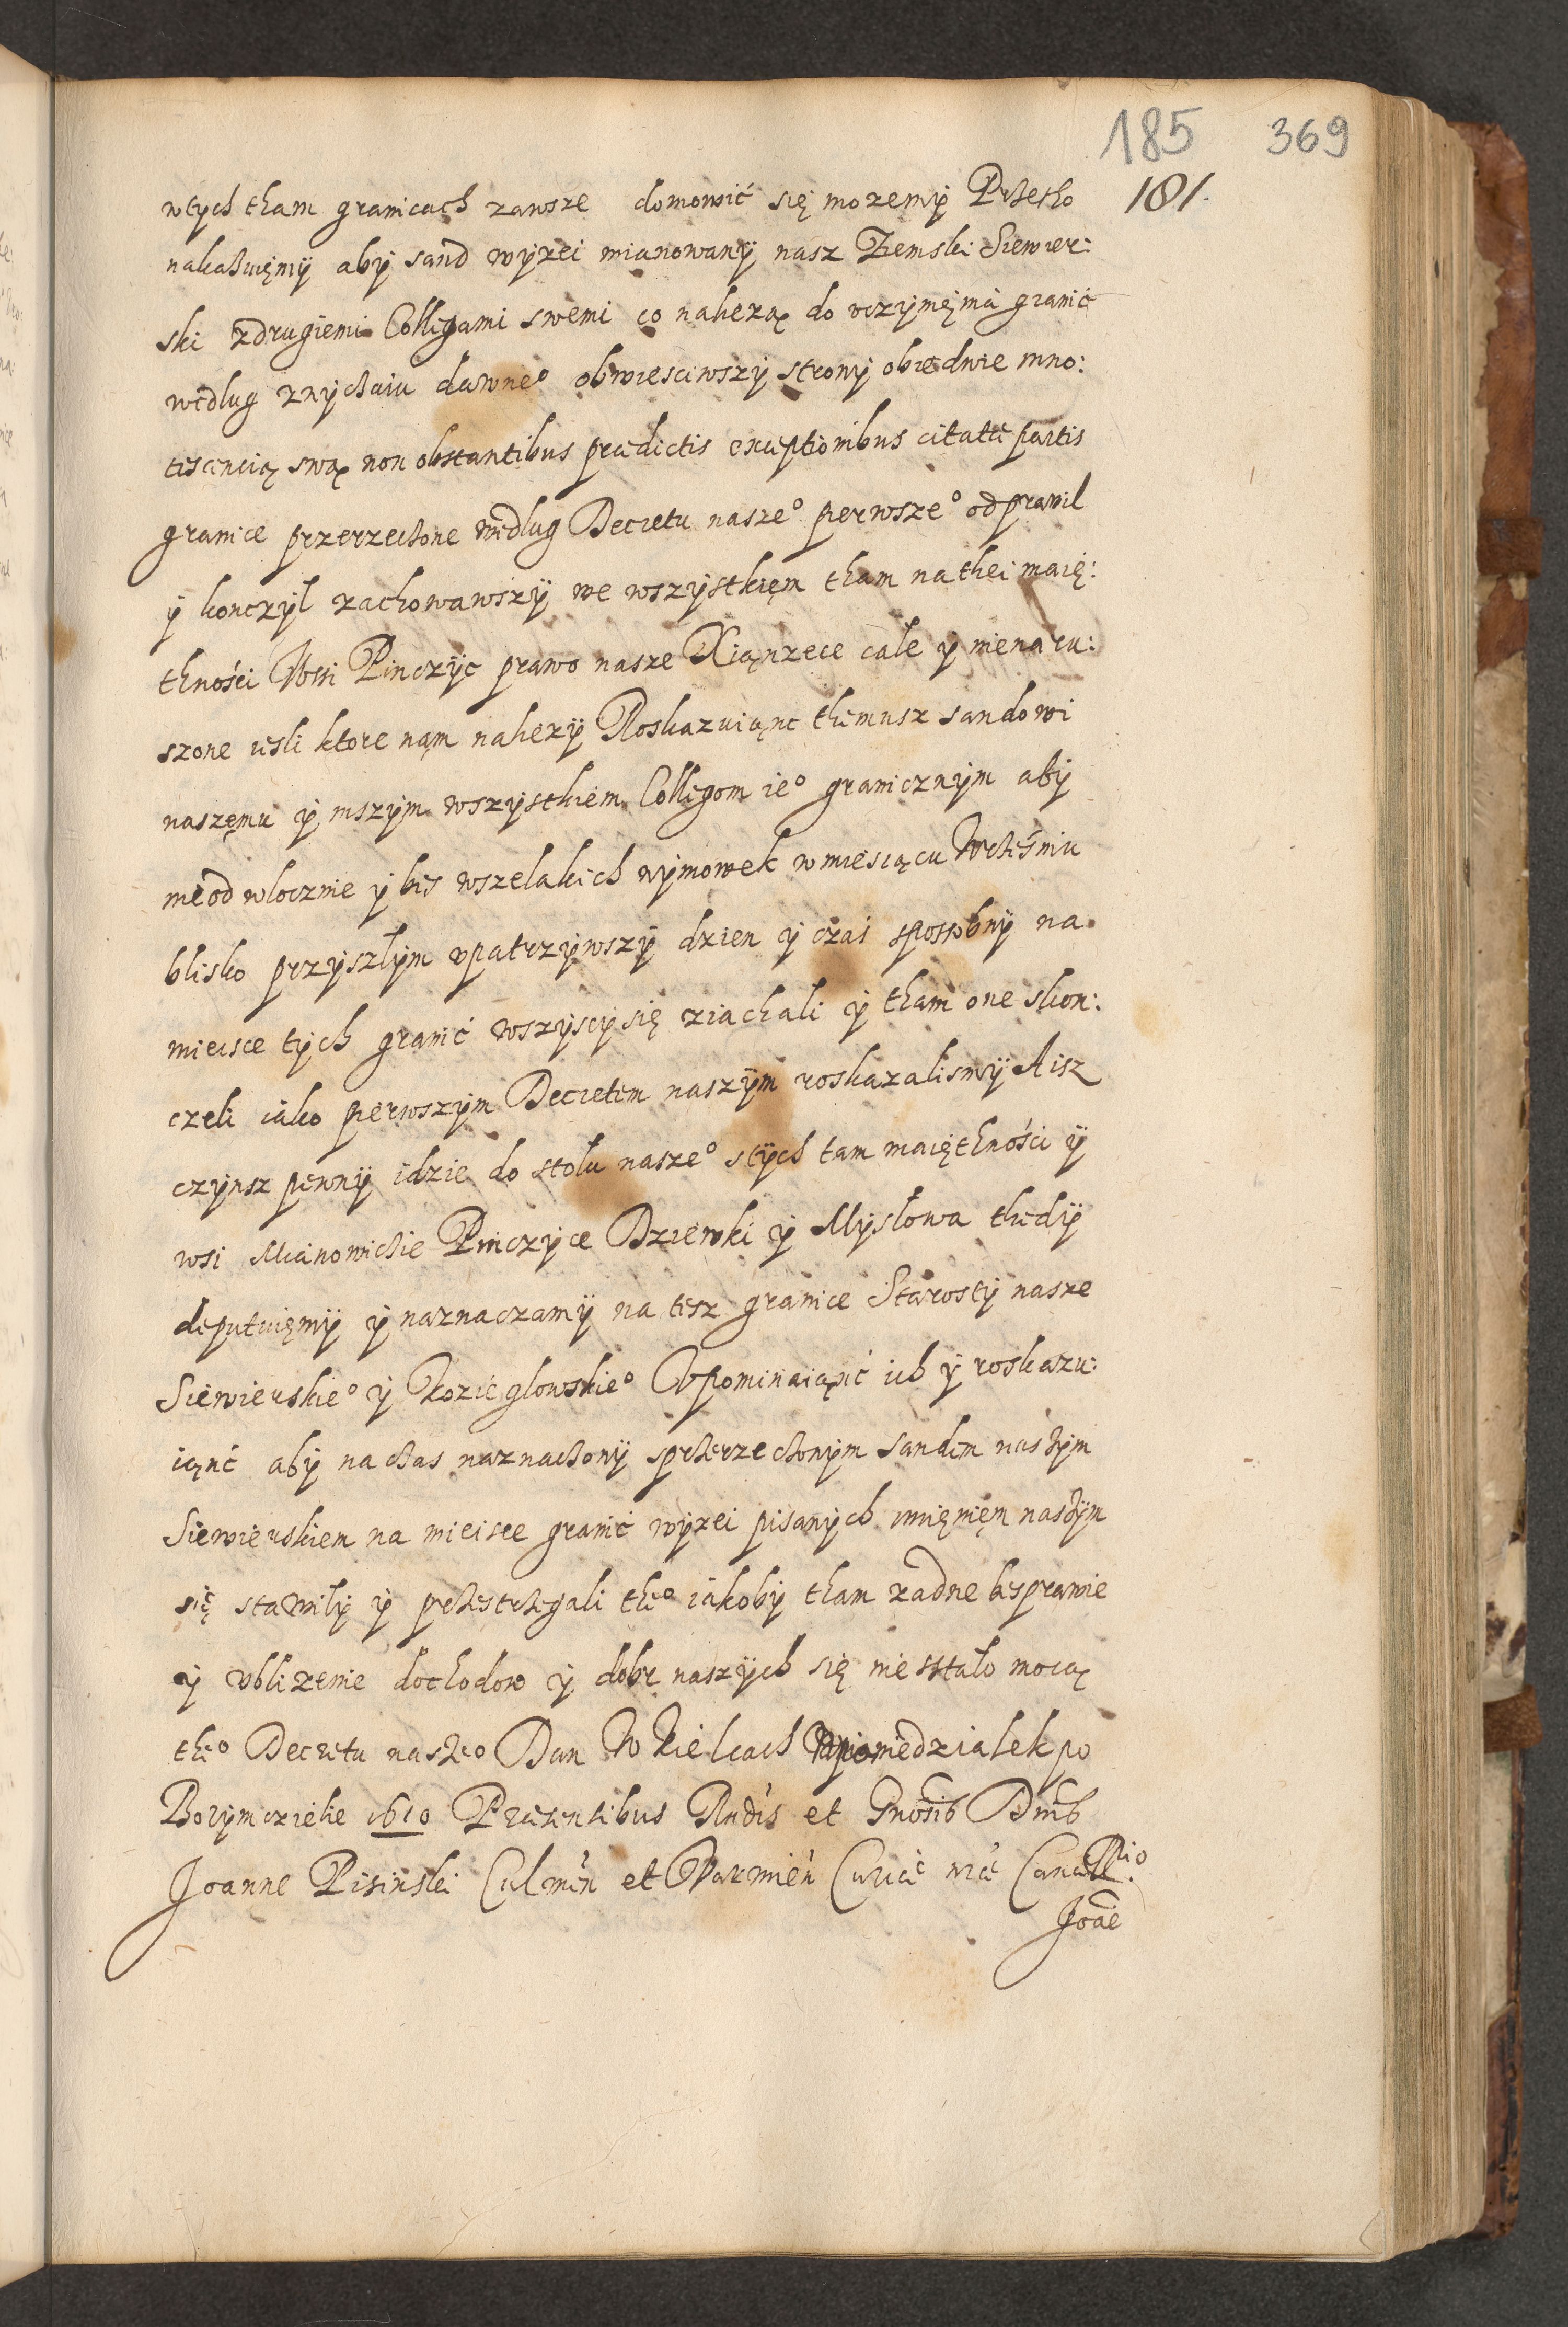 185 369
181.
wtych tham granicach zawsze domowić się mozemy Przetho
nakazuięmy aby sand wyzei mianowany nasz Ziemski Siewier:
ski zdrugiemi Collegami swemi co nalezą do uczynięnia granic
według zwyczaiu dawne° obwiesciwszy strony obiedwie inno:
tescencią swą non obstantibus prædictis exceptionibus citatæ partis
granice przerzeczone według Decretu nasze° pierwsze° odprawil
y konczyl zachowawszy we wszystkięm tham na thei maię:
thności Wsi Pinczyc prawo nasze Xiąnzece cale y nienaru:
szone iesli ktore nąm nalezy Roskazuiąnc themusz sandowi
naszęmu y inszym wszystkiem Collegom ie° granicznym aby
nieodwlocznie y bes wszelakich wymowek w miesiącu Wrześniu
blisko przyszłym upatrzywszy dzien y czas sposobny na
mieisce tych granic wszyscy się ziachali y tham one skon:
czeli iako pierwszym Decretem naszym roskazalismy A isz
czynsz pewny idzie do stołu nasze° stych tam maięthności y
wsi Mianowicie Pinczyce Dziewki y Mysłowa thedy
deputuięmy y naznaczamy na tesz granice Starosty nasze
Siewierskie° y Kozieglowskie° Upominaiąnć ich y roskazu:
iąnć aby na czas naznaczony sprzerzeczonym Sandem naszym
Siewierskiem na mieisce granic wyzei pisanych imięnięm naszym
się stawily y przestrzegali the° iakoby tham zadne besprawie
y ubliżenie dochodow y dobr naszych się nie sstało mocą
the° Decretu nasze° Dan W Kielcach w poniedzialek po
Bozym cziele 1610 Præsentibus Rndis et Gnosib Dnis
Joanne Pisinski Culmen et Varmien Curiæ nræ Cancell<sup>rio</sup>
Joãe